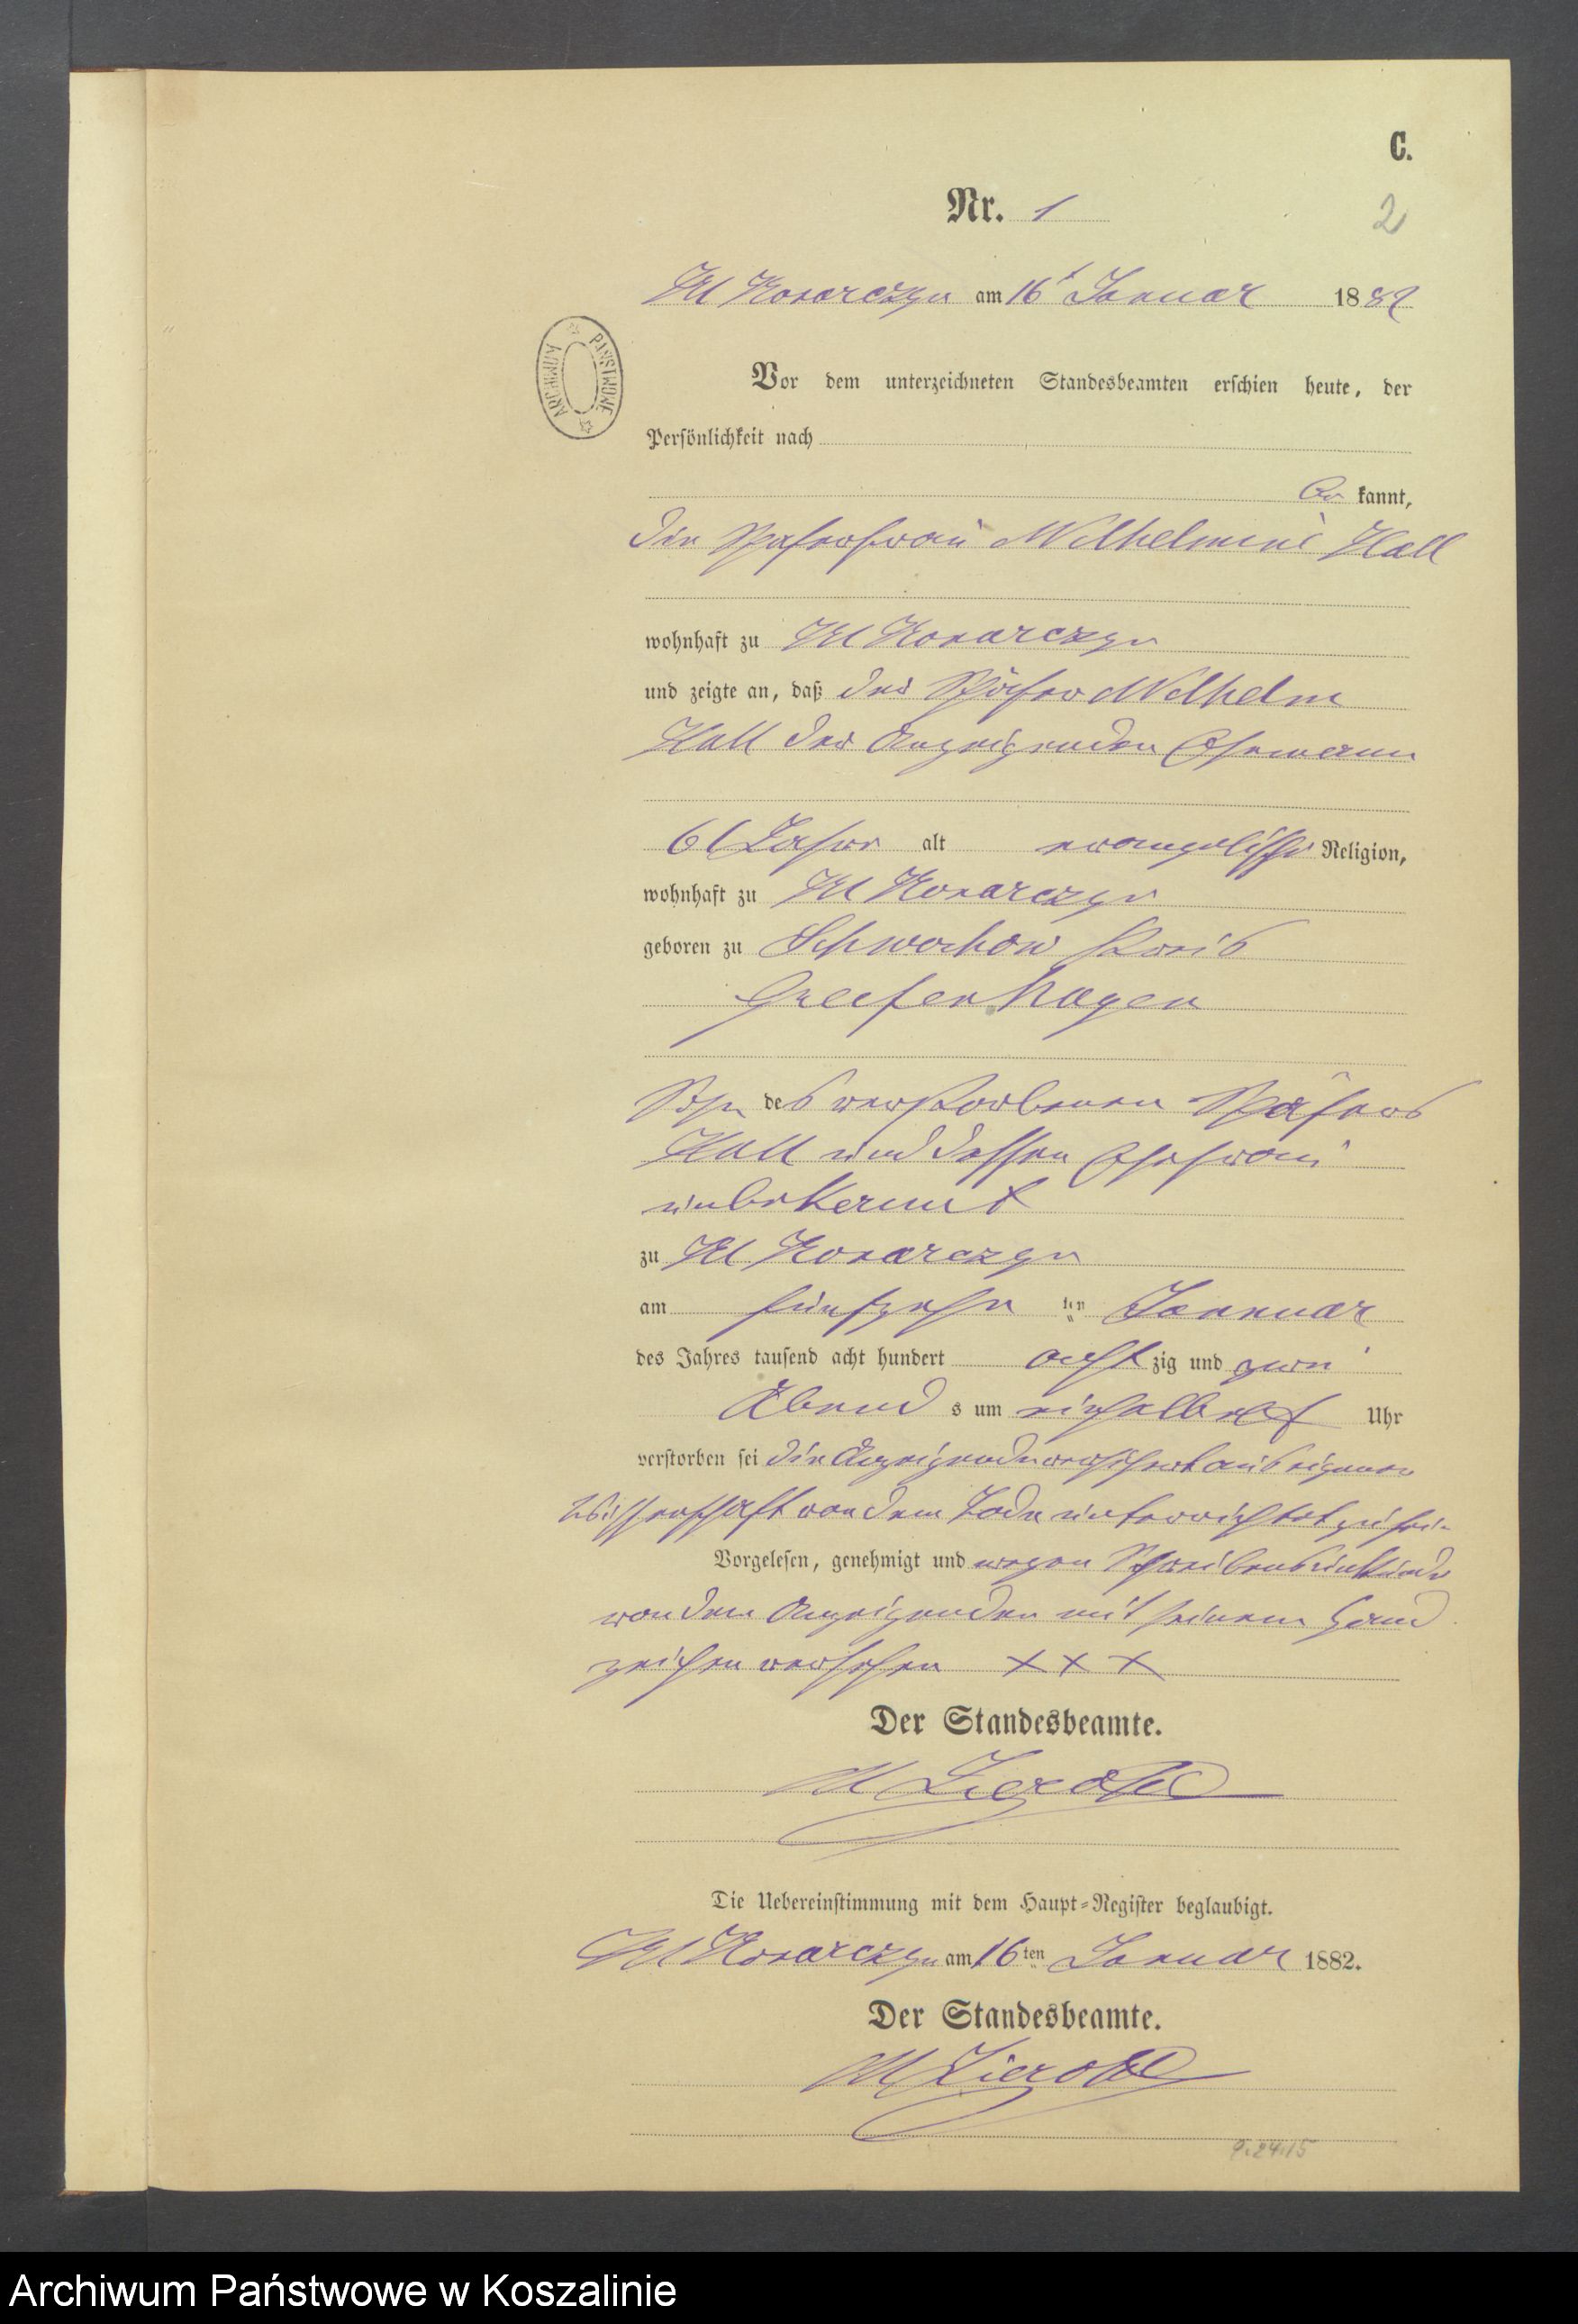 C.
Nr. 1
2
Kl Konarczyn am 16t Januar 1882
ARCHIWUM PAŃSTWOWE
Vor dem unterzeichneten Standesbeamten erschien heute, der
Persönlichkeit nach
be kannt,
die Schäferfrau Wilhelmine Hall
wohnhaft zu Kl Konarczyn
und zeigte an, daß der Schäfer Wilhelm
Hall der Anzeigenden Ehemann
61 Jahre alt evangelische Religion,
wohnhaft zu Kl Konarczyn
geboren zu Schwochow Kreis
Greifenhagen
Sohn des verstorbenen Schäfers
Hall und dessen Ehefrau
unbekannt
zu Kl Konarczyn
am fünfzehn ten Januar
des Jahres tausend acht hundert acht zig und zwei
Abend s um Uhr
verstorben sei die Anzeigende versichert aus eigener
Wissenschaft von dem Tode unterrichtet zu sein
Vorgelesen, genehmigt und wegen Schreibensunkunde
von dem Anzeigenden mit seinem Hand
zeichen versehen XXX
Der Standesbeamte.
Die Uebereinstimmung mit dem Haupt-Register beglaubigt.
Kl Konarczyn am 16ten Januar 1882.
Der Standesbeamte.
9.24.15
Archiwum Państwowe w Koszalinie